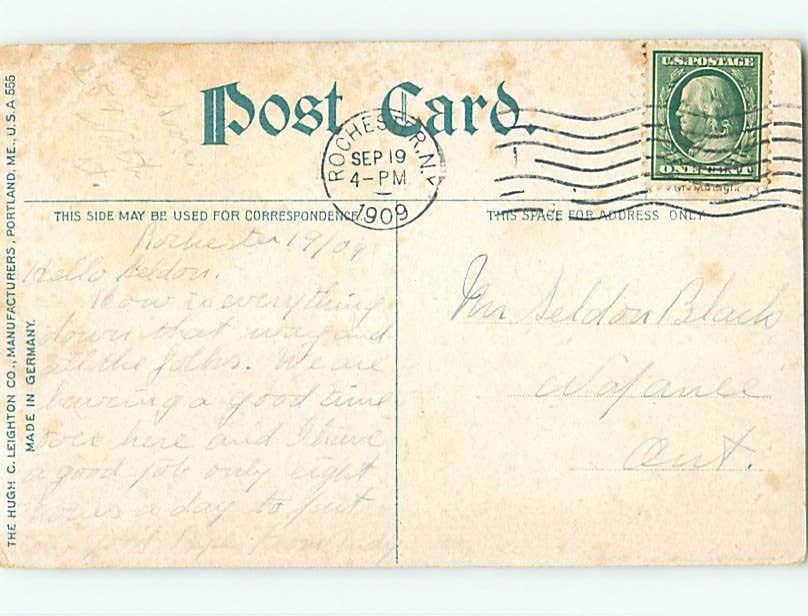 Post Card.
U.S. POSTAGE
ONE CENT
ROCHESTER, N.Y.
SEP 19
4-PM
1909
THIS SIDE MAY BE USED FOR CORRESPONDENCE
THIS SPACE FOR ADDRESS ONLY
THE HUGH C. LEIGHTON CO., MANUFACTURERS, PORTLAND, ME., U.S.A 555
MADE IN GERMANY.
Rochester 19/09
Hello Seldon.
How is everything
down that way and
all the folks. We are
having a good time
over here and I have
a good job only eight
hours a day to put
Mr Seldon Black
Napanee
Ont.